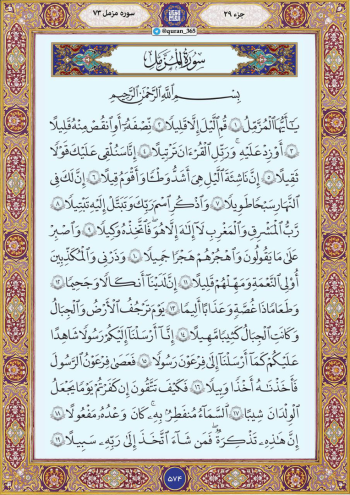 جزء ۲۹
سوره مزمل ۷۳
@quran_365
سُورَةُ المُزَّمِّلِ
بِسْمِ ٱللَّهِ ٱلرَّحْمَٰنِ ٱلرَّحِيمِ
يَٰٓأَيُّهَا ٱلْمُزَّمِّلُ ١ قُمِ ٱلَّيْلَ إِلَّا قَلِيلًا ٢ نِّصْفَهُۥٓ أَوِ ٱنقُصْ مِنْهُ قَلِيلًا
٣ أَوْ زِدْ عَلَيْهِ وَرَتِّلِ ٱلْقُرْءَانَ تَرْتِيلًا ٤ إِنَّا سَنُلْقِى عَلَيْكَ قَوْلًا
ثَقِيلًا ٥ إِنَّ نَاشِئَةَ ٱلَّيْلِ هِىَ أَشَدُّ وَطْـًٔا وَأَقْوَمُ قِيلًا ٦ إِنَّ لَكَ فِى
ٱلنَّهَارِ سَبْحًا طَوِيلًا ٧ وَٱذْكُرِ ٱسْمَ رَبِّكَ وَتَبَتَّلْ إِلَيْهِ تَبْتِيلًا ٨
رَّبُّ ٱلْمَشْرِقِ وَٱلْمَغْرِبِ لَآ إِلَٰهَ إِلَّا هُوَ فَٱتَّخِذْهُ وَكِيلًا ٩ وَٱصْبِرْ
عَلَىٰ مَا يَقُولُونَ وَٱهْجُرْهُمْ هَجْرًا جَمِيلًا ١٠ وَذَرْنِى وَٱلْمُكَذِّبِينَ
أُو۟لِى ٱلنَّعْمَةِ وَمَهِّلْهُمْ قَلِيلًا ١١ إِنَّ لَدَيْنَآ أَنكَالًا وَجَحِيمًا ١٢
وَطَعَامًا ذَا غُصَّةٍ وَعَذَابًا أَلِيمًا ١٣ يَوْمَ تَرْجُفُ ٱلْأَرْضُ وَٱلْجِبَالُ
وَكَانَتِ ٱلْجِبَالُ كَثِيبًا مَّهِيلًا ١٤ إِنَّآ أَرْسَلْنَآ إِلَيْكُمْ رَسُولًا شَٰهِدًا
عَلَيْكُمْ كَمَآ أَرْسَلْنَآ إِلَىٰ فِرْعَوْنَ رَسُولًا ١٥ فَعَصَىٰ فِرْعَوْنُ ٱلرَّسُولَ
فَأَخَذْنَٰهُ أَخْذًا وَبِيلًا ١٦ فَكَيْفَ تَتَّقُونَ إِن كَفَرْتُمْ يَوْمًا يَجْعَلُ
ٱلْوِلْدَٰنَ شِيبًا ١٧ ٱلسَّمَآءُ مُنفَطِرٌۢ بِهِۦ كَانَ وَعْدُهُۥ مَفْعُولًا ١٨
إِنَّ هَٰذِهِۦ تَذْكِرَةٌ فَمَن شَآءَ ٱتَّخَذَ إِلَىٰ رَبِّهِۦ سَبِيلًا ١٩
۵۷۴